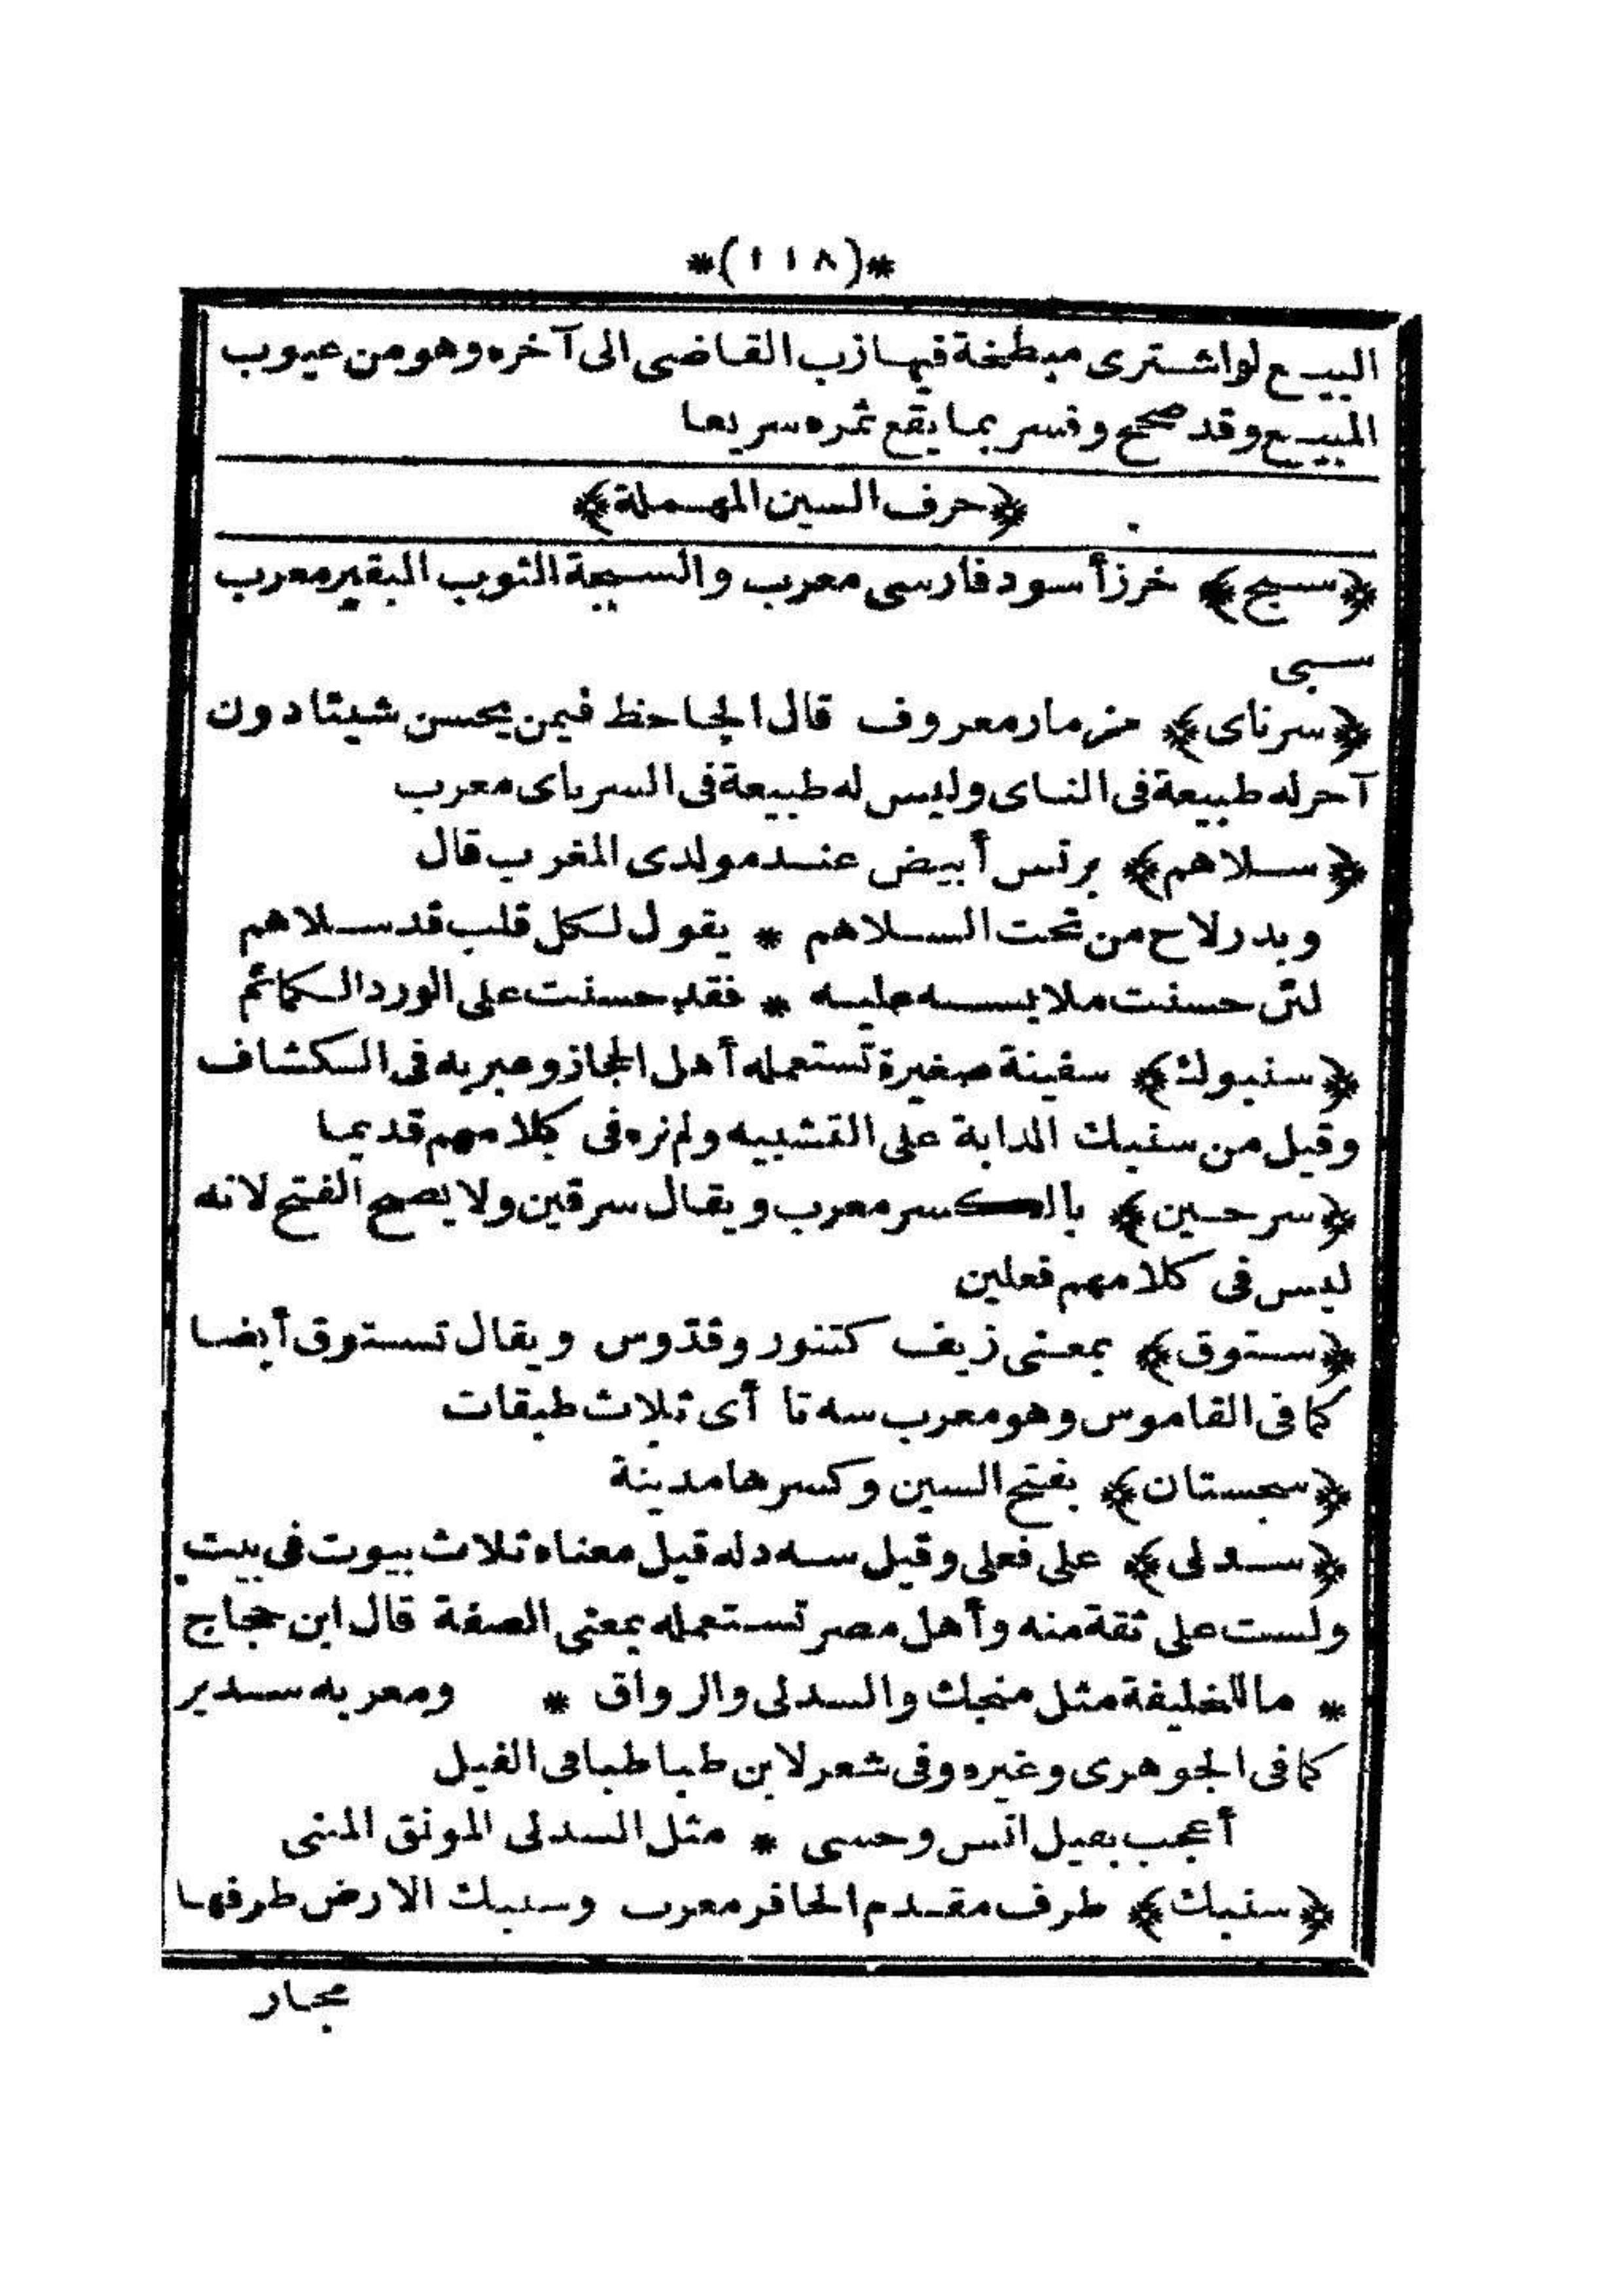 *(١١٨)*
البيع لو اشترى مبطخة فيها زب القاضى الى آخره وهو من عيوب
المبيع وقد صحح وفسر بما يقع ثمره سريعا
﴿حرف السين المهملة﴾
﴿سبج﴾ خرز أسود فارسى معرب والسبيجة الثوب البقير معرب
سبى
﴿سرناى﴾ مزمار معروف قال الجاحظ فيمن يحسن شيئا دون
آخر له طبيعة فى الناى وليس له طبيعة فى السرناى معرب
﴿سلاهم﴾ برنس أبيض عند مولدى المغرب قال
وبدر لاح من تحت السلاهم * يقول لكل قلب قد سلاهم
لئن حسنت ملابسه عليه * فقد حسنت على الورد الكمائم
﴿سنبوك﴾ سفينة صغيرة تستعمله أهل الحجاز وعبر به فى الكشاف
وقيل من سنبك الدابة على التشبيه ولم نره فى كلامهم قديما
﴿سرجين﴾ بالكسر معرب ويقال سرقين ولا يصح الفتح لانه
ليس فى كلامهم فعلين
﴿ستوق﴾ بمعنى زيف كتنور وقدّوس ويقال تستوق أيضا
كما فى القاموس وهو معرب سه تا أى ثلاث طبقات
﴿سجستان﴾ بفتح السين وكسرها مدينة
﴿سدلى﴾ على فعلى وقيل سه دله قيل معناه ثلاث بيوت فى بيت
ولست على ثقة منه وأهل مصر تستعمله بمعنى الصفة قال ابن حجاج
* ما للخليفة مثل منجك والسدلى والرواق * ومعربه سدير
كما فى الجوهرى وغيره وفى شعر لابن طباطبا فى الفيل
أعجب بفيل انس وحشى * مثل السدلى المونق المبنى
﴿سنبك﴾ طرف مقدم الحافر معرب وسنبك الارض طرفها
مجاز